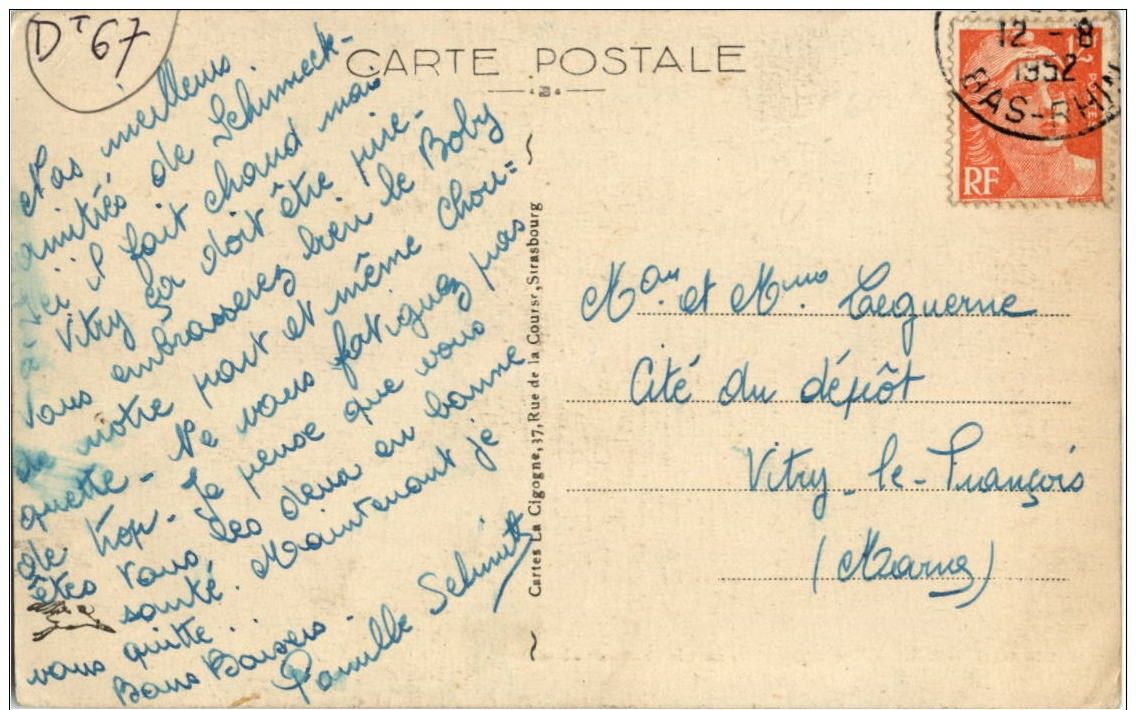 Dt 67
CARTE POSTALE
Nos meilleurs
amitiés de Schirmeck-
Ici il fait chaud mais
à Vitry ça doit être pire-
Vous embrasserez bien le Boby
de notre part et même Chou=
quette - Ne vous fatiguez pas
de trop - Je pense que vous
êtes tous les deux en bonne
santé. Maintenant je
vous quitte..
Bons Baisers.
Famille Schmitt
Cartes La Cigogne, 37, Rue de la Course, Strasbourg
12 - 8
1952
BAS-RHIN
12F
RF
Mr et Mme Leguerne
Cité du dépôt
Vitry-le-François
(Marne)